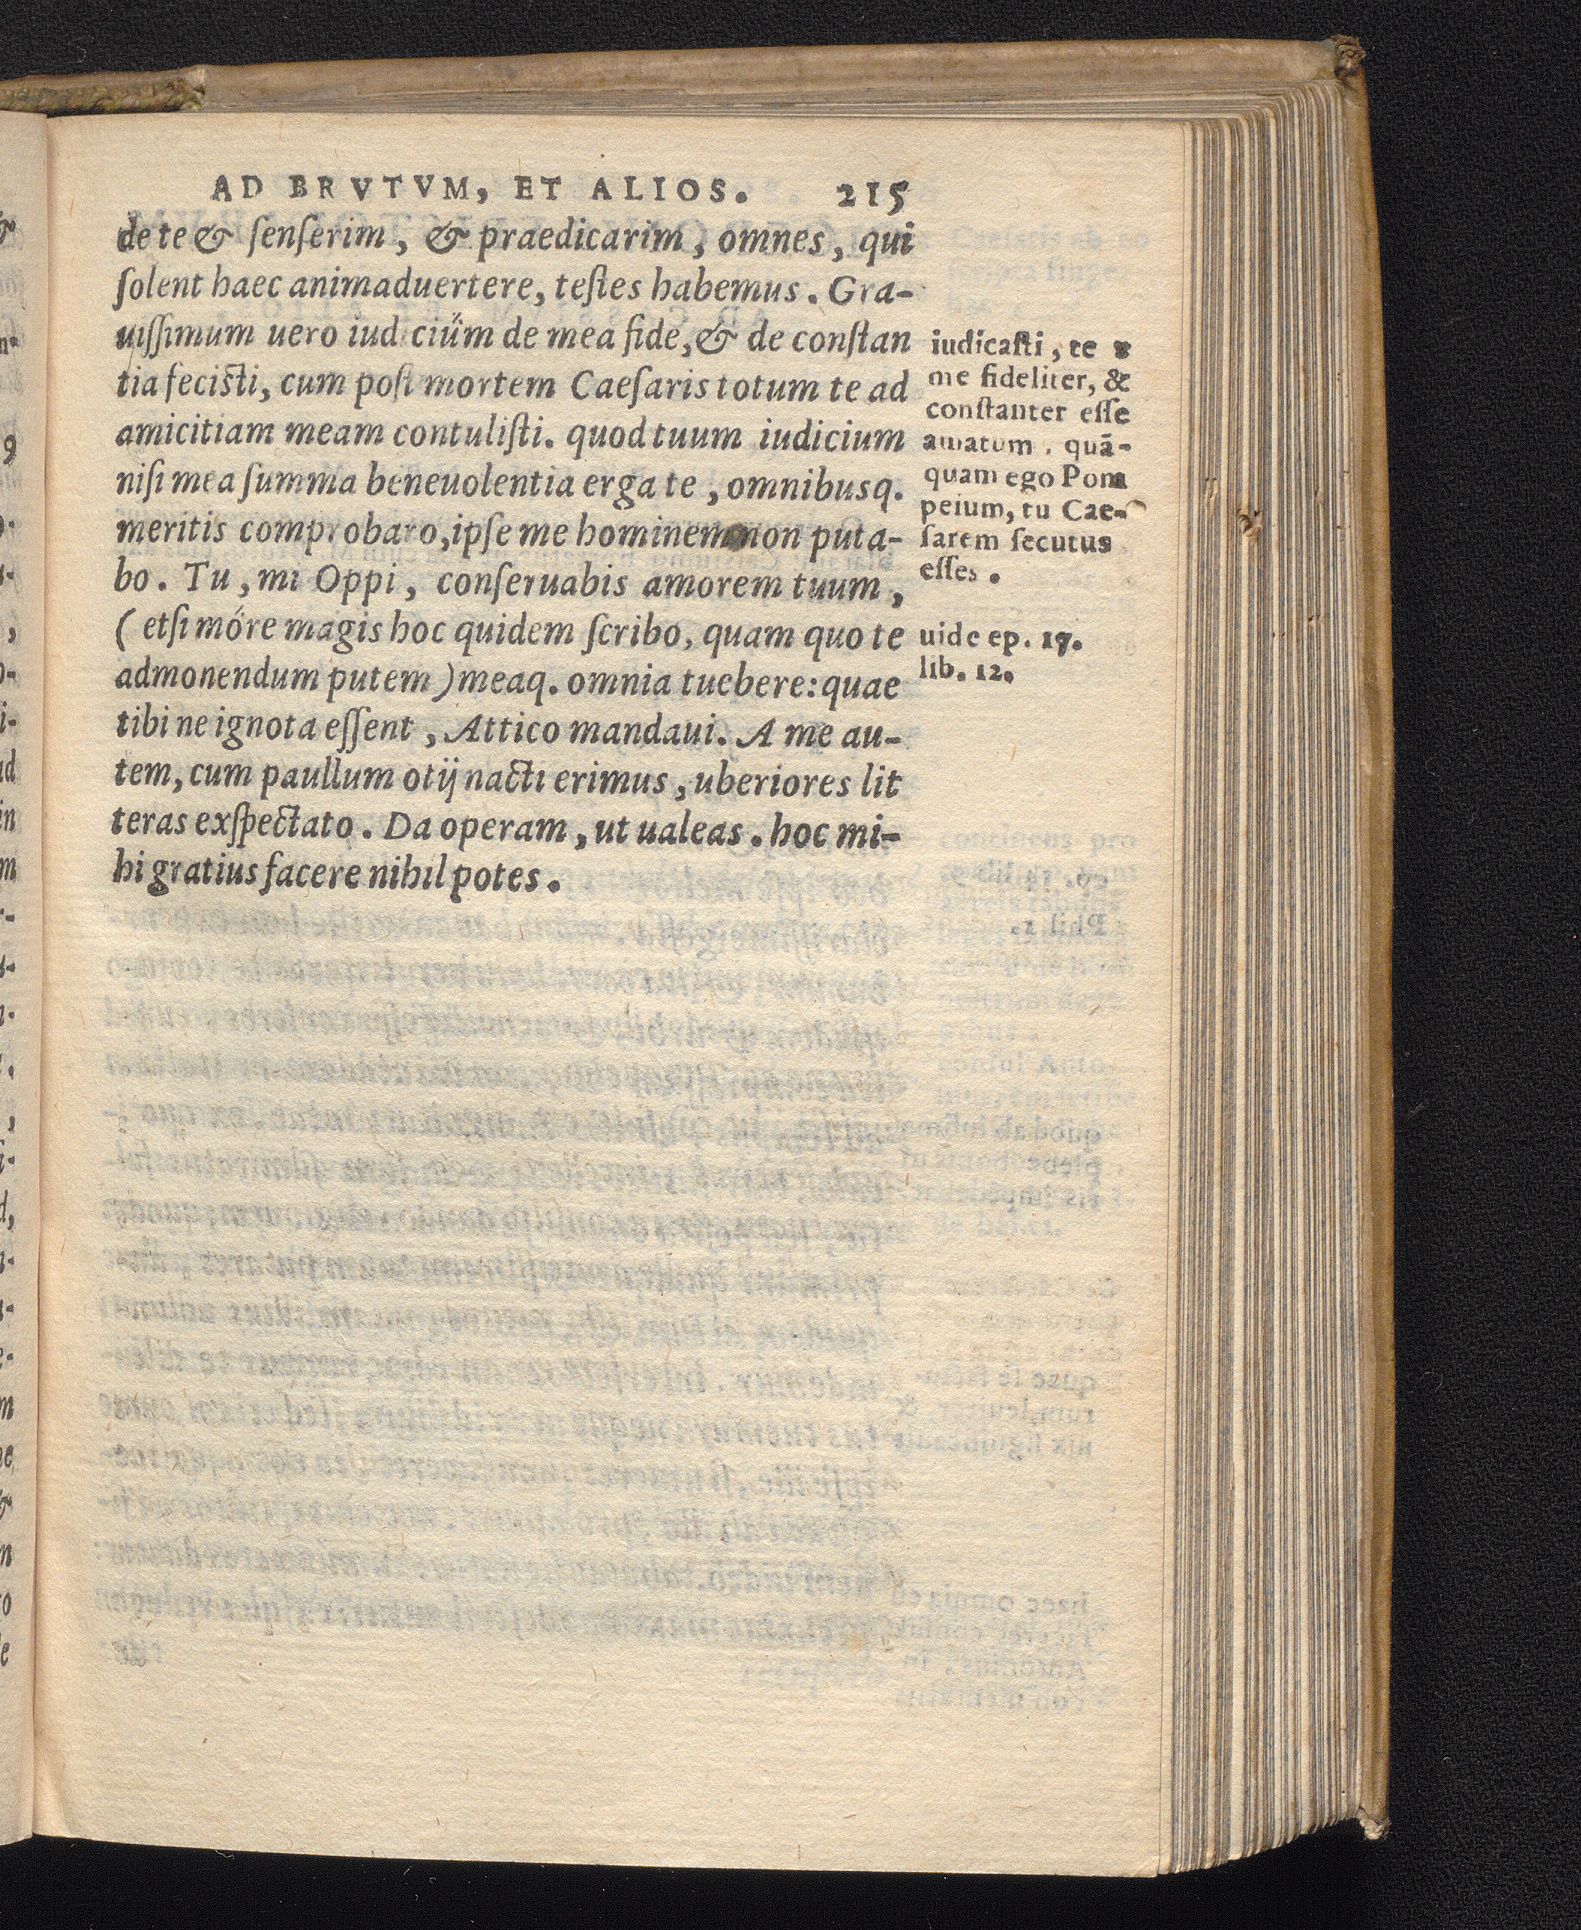 AD BRVTVM, ET ALIOS. 215
de te & ſenſerim, & praedicarim, omnes, qui
ſolent haec animaduertere, teſtes habemus. Gra-
uiſſimum uero iudicium de mea fide, & de conſtan
tia feciſti, cum poſt mortem Caeſaris totum te ad
amicitiam meam contuliſti. quod tuum iudicium
niſi mea ſumma beneuolentia erga te, omnibusq.
meritis comprobaro, ipſe me hominem non puta-
bo. Tu, mi Oppi, conſeruabis amorem tuum,
(etſi more magis hoc quidem ſcribo, quam quo te
admonendum putem) meaq. omnia tuebere: quae
tibi ne ignota eſſent, Attico mandaui. A me au-
tem, cum paullum otij nacti erimus, uberiores lit
teras exſpectato. Da operam, ut ualeas. hoc mi-
hi gratius facere nihil potes.
iudicaſti, te a
me fideliter, &
conſtanter eſſe
amatum. quā-
quam ego Pom
peium, tu Cae-
ſarem ſecutus
eſſes.
uide ep. 17.
lib. 12.